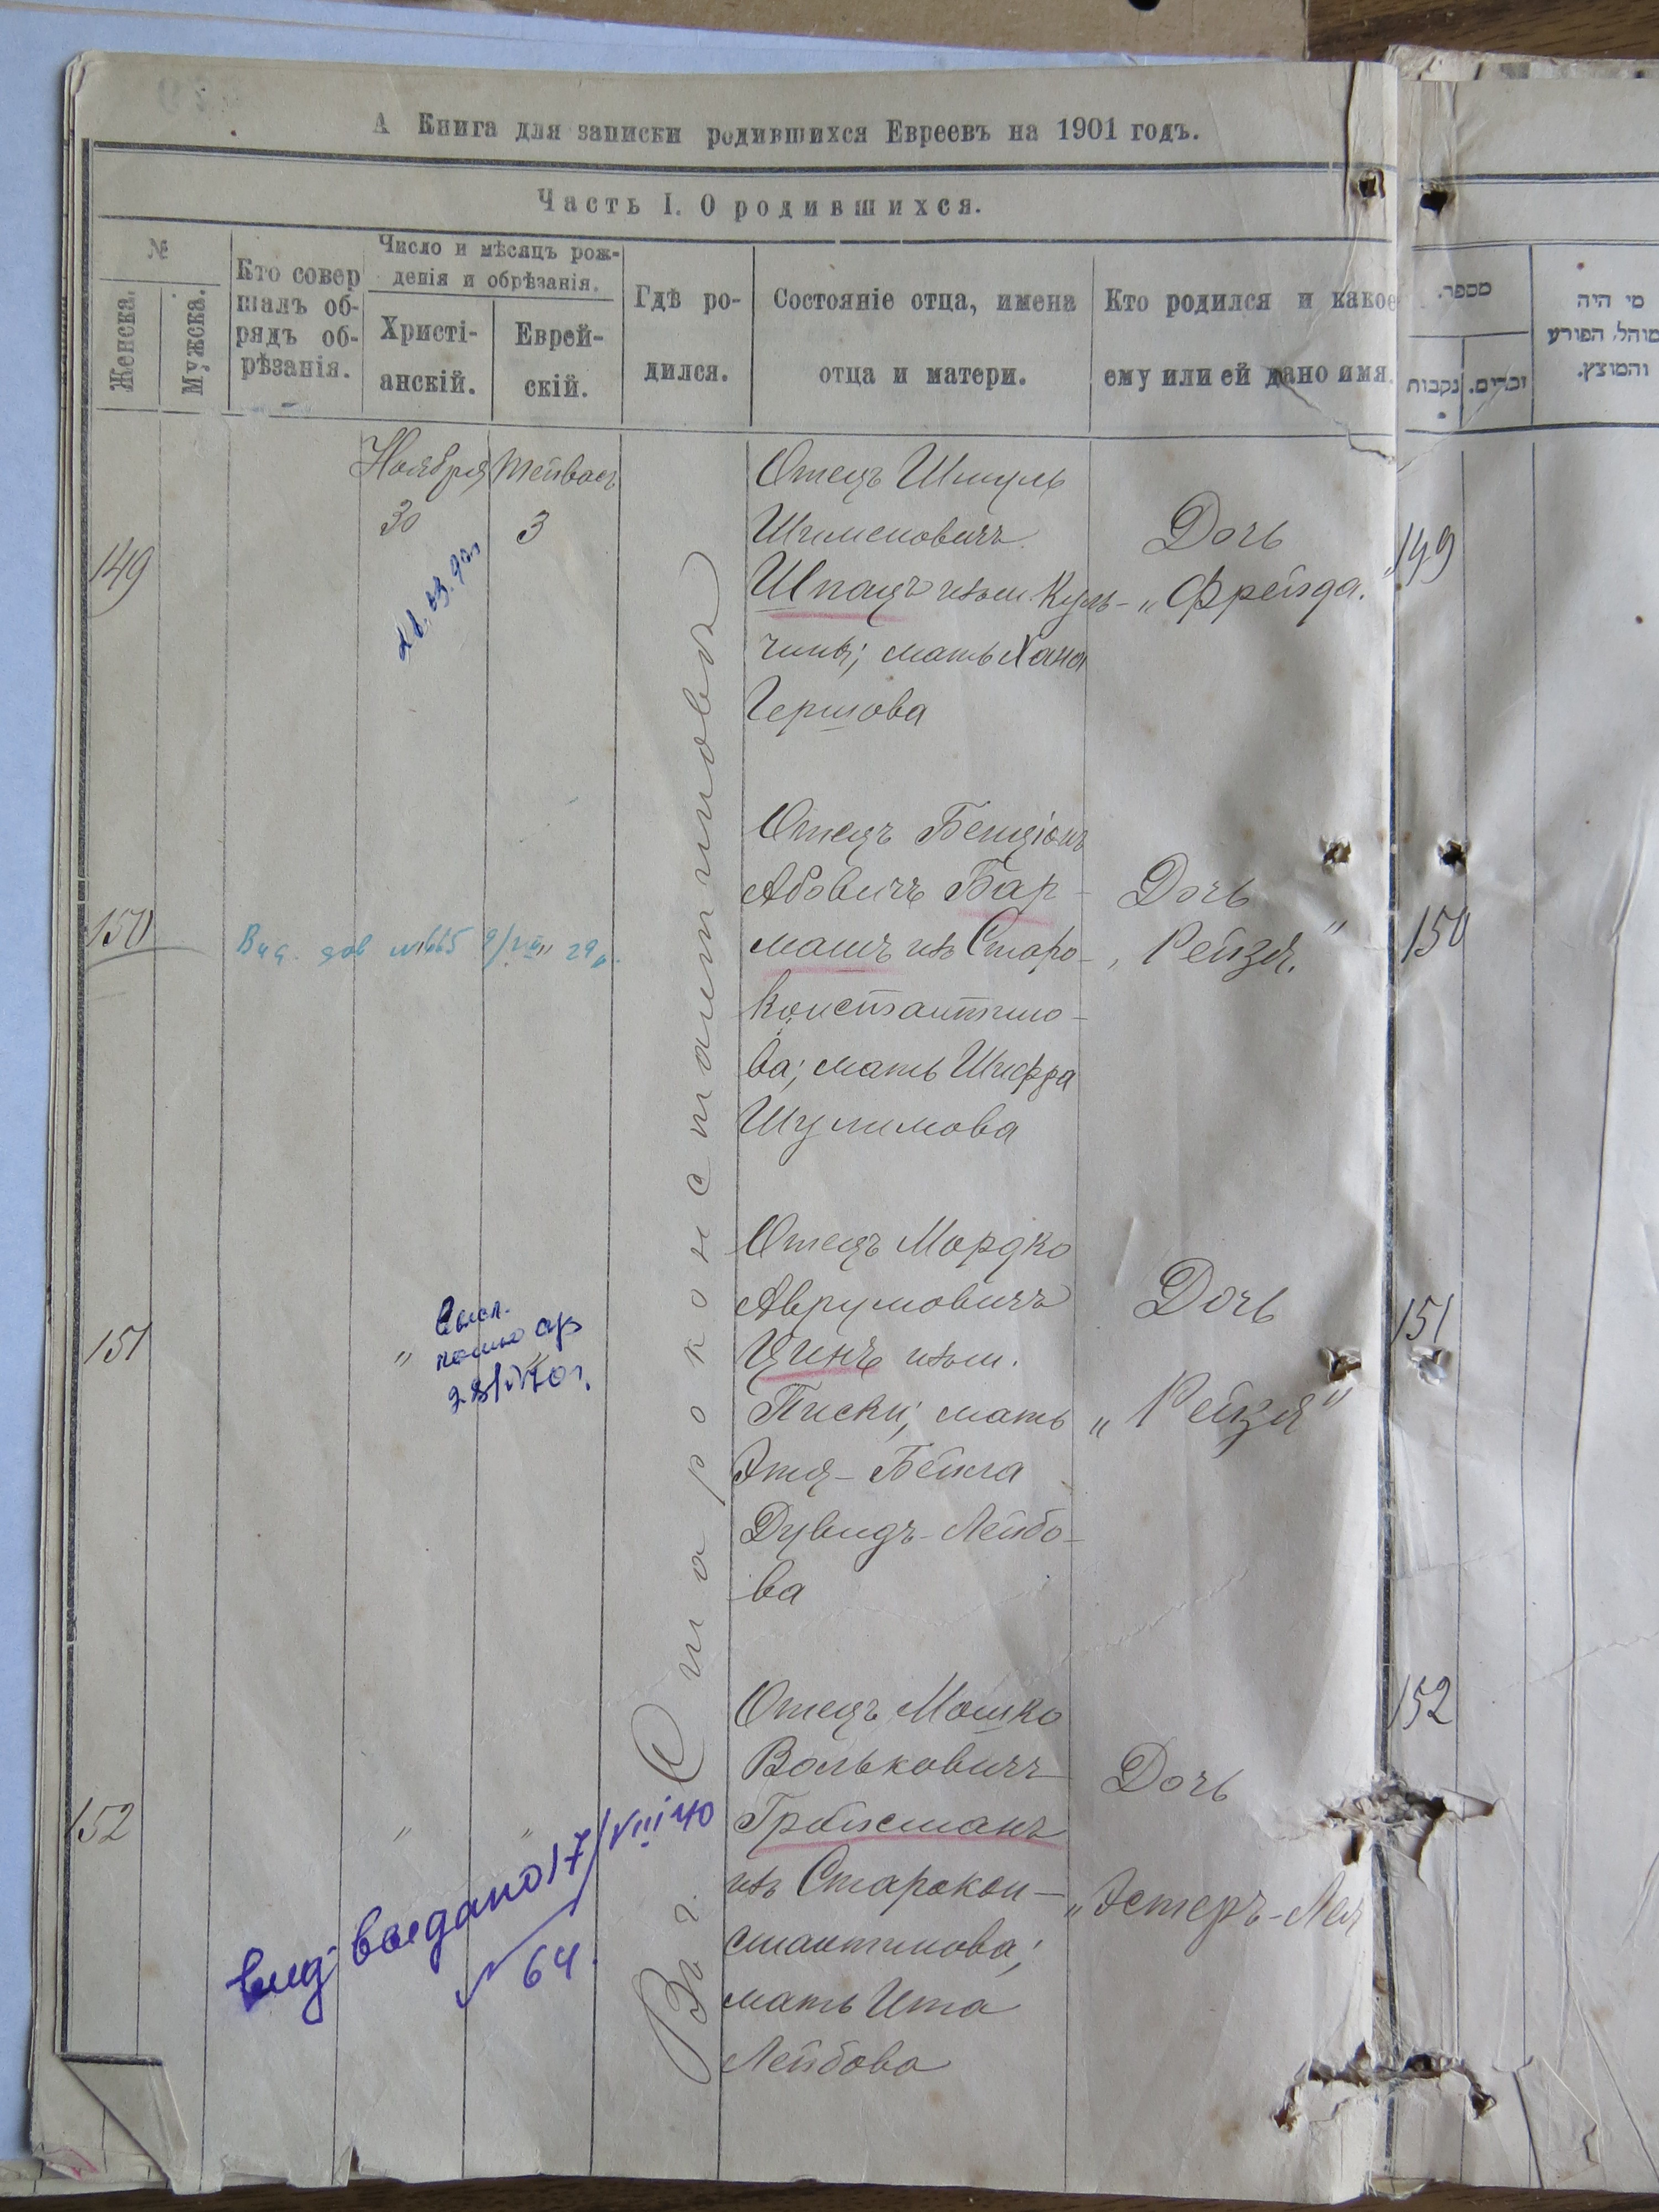 А Книга для записки родившихся Евреевъ на 1901 годъ.
Часть I. О родившихся.
№
Женска.
Мужска.
Кто совер
шалъ об-
рядъ об-
рѣзанія.
Число и мѣсяцъ рож-
денія и обрѣзанія.
Христі-
анскій.
Еврей-
скій.
Гдѣ ро-
дился.
Состояніе отца, имена
отца и матери.
Кто родился и какое
ему или ей дано имя.
מספר.
נקבות
זכרים.
מי היה
מוהל, הפורע
והמוצץ.
Въ г. Староконстантиновѣ
149
Ноября
30
Тейвесъ
3
Отецъ Шмуль
Шименовичъ
Шпацъ изъ м. Куль-
чинъ; мать Хана
Гершова
Дочь
„Фрейда."
149
150
Выд. дов №665 9/VIII 29 г.
Отецъ Бенціонъ
Абовичъ Бар-
машъ изъ Старо-
константино-
ва; мать Шифра
Шулимова
Дочь
„Рейзя."
150
151
"
Высл.
28/IV 70 г.
Отецъ Мордко
Аврумовичъ
Цинъ изъ м.
Писки; мать
Этя-Бейла
Дувидъ-Лейбо-
ва
Дочь
„Рейзя"
151
152
" "
выдано 17/VIII 40
№ 64.
Отецъ Мошко
Вольковичъ
Гройсманъ
изъ Старокон-
стантинова;
мать Ита
Лейбова
Дочь
„Эстеръ-Лея
152